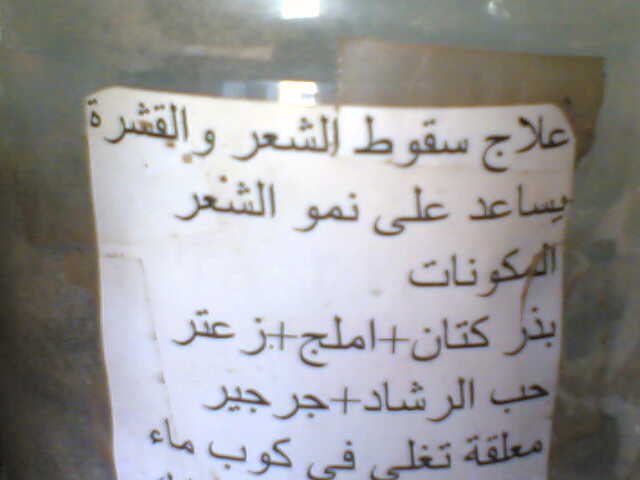 علاج سقوط الشعر والقشرة
يساعد على نمو الشعر
المكونات
بذر كتان+املج+زعتر
حب الرشاد+جرجير
معلقة تغلي في كوب ماء